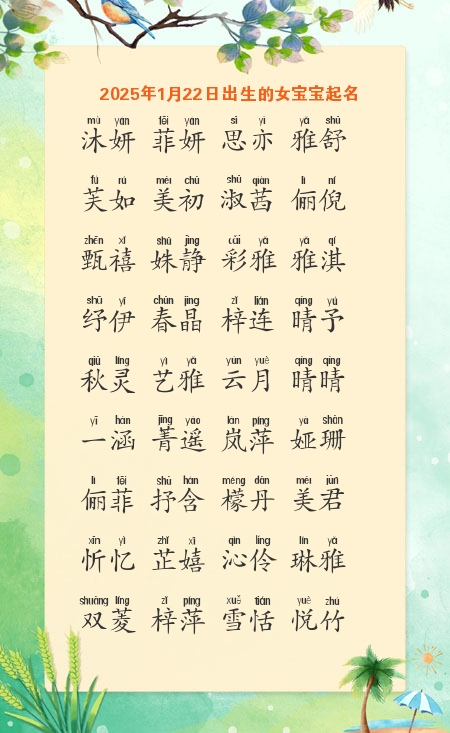 2025年1月22日出生的女宝宝起名
mù yán fēi yán sì yì yǎ shū
沐妍 菲妍 思亦 雅舒
fú rú měi chū shū qiàn lì ní
芙如 美初 淑茜 俪倪
zhēn xǐ shū jìng cǎi yǎ yǎ qí
甄禧 姝静 彩雅 雅淇
shū yī chūn jīng zǐ lián qíng yú
纾伊 春晶 梓连 晴予
qiū líng yì yǎ yún yuè qíng qíng
秋灵 艺雅 云月 晴晴
yī hán jīng yáo lán píng yà shān
一涵 菁遥 岚萍 娅珊
lì fēi shū hán méng dān měi jūn
俪菲 抒含 檬丹 美君
xīn yì zhǐ xī qìn líng lín yǎ
忻忆 芷嬉 沁伶 琳雅
shuāng líng zǐ píng xuě tián yuè zhú
双菱 梓萍 雪恬 悦竹